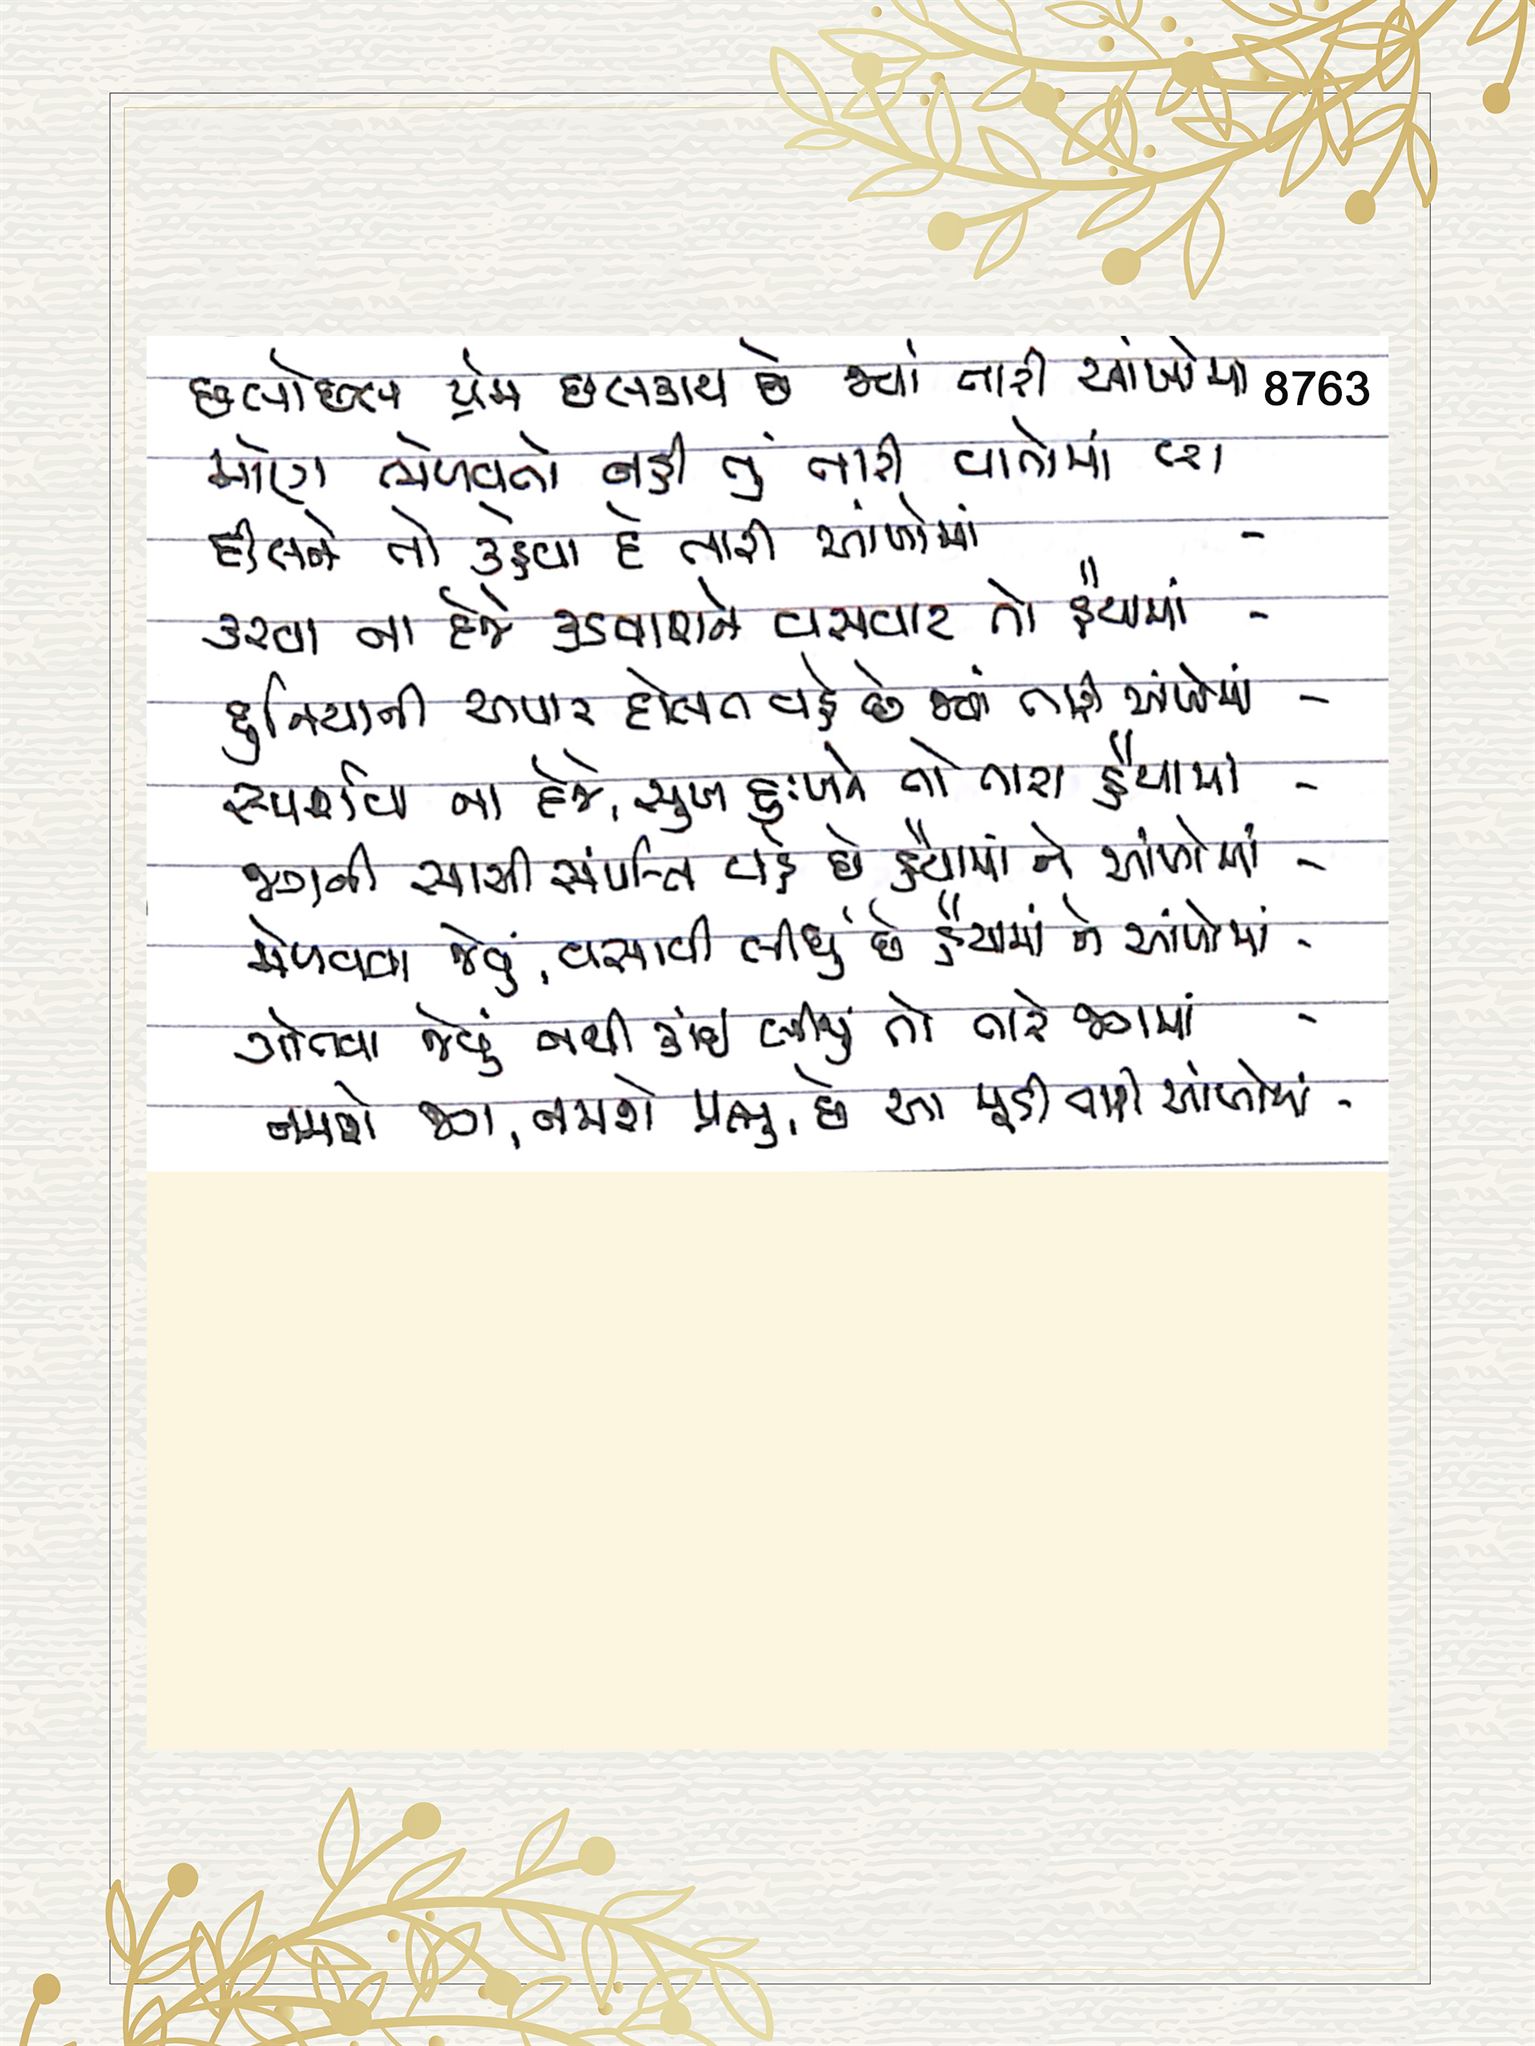 છલોછલ પ્રેમ છલકાય છે જ્યાં તારી આંખોમાં 8763
ભેળવતો નહી તું તારી વાતોમાં
દીલને તો કહેવા દે તારી આંખોમાં -
કરવા ના દેજે કડવાશને વસવાટ તો હૈયામાં -
દુનિયાની અપાર દોલત વહે છે જ્યાં તારી આંખોમાં -
સ્પર્શવા ના દેજે, સુખ દુઃખને તો તારા હૈયામાં -
જગની સાચી સંપત્તિ વહે છે હૈયામાં ને આંખોમાં -
મેળવવા જેવું, વસાવી લીધું છે હૈયામાં ને આંખોમાં -
ગોતવા જેવું નથી કાંઇ બીજું તો તારે જગમાં -
નમશે જગ, નમશે પ્રભુ, છે આ મૂડી તારી આંખોમાં -